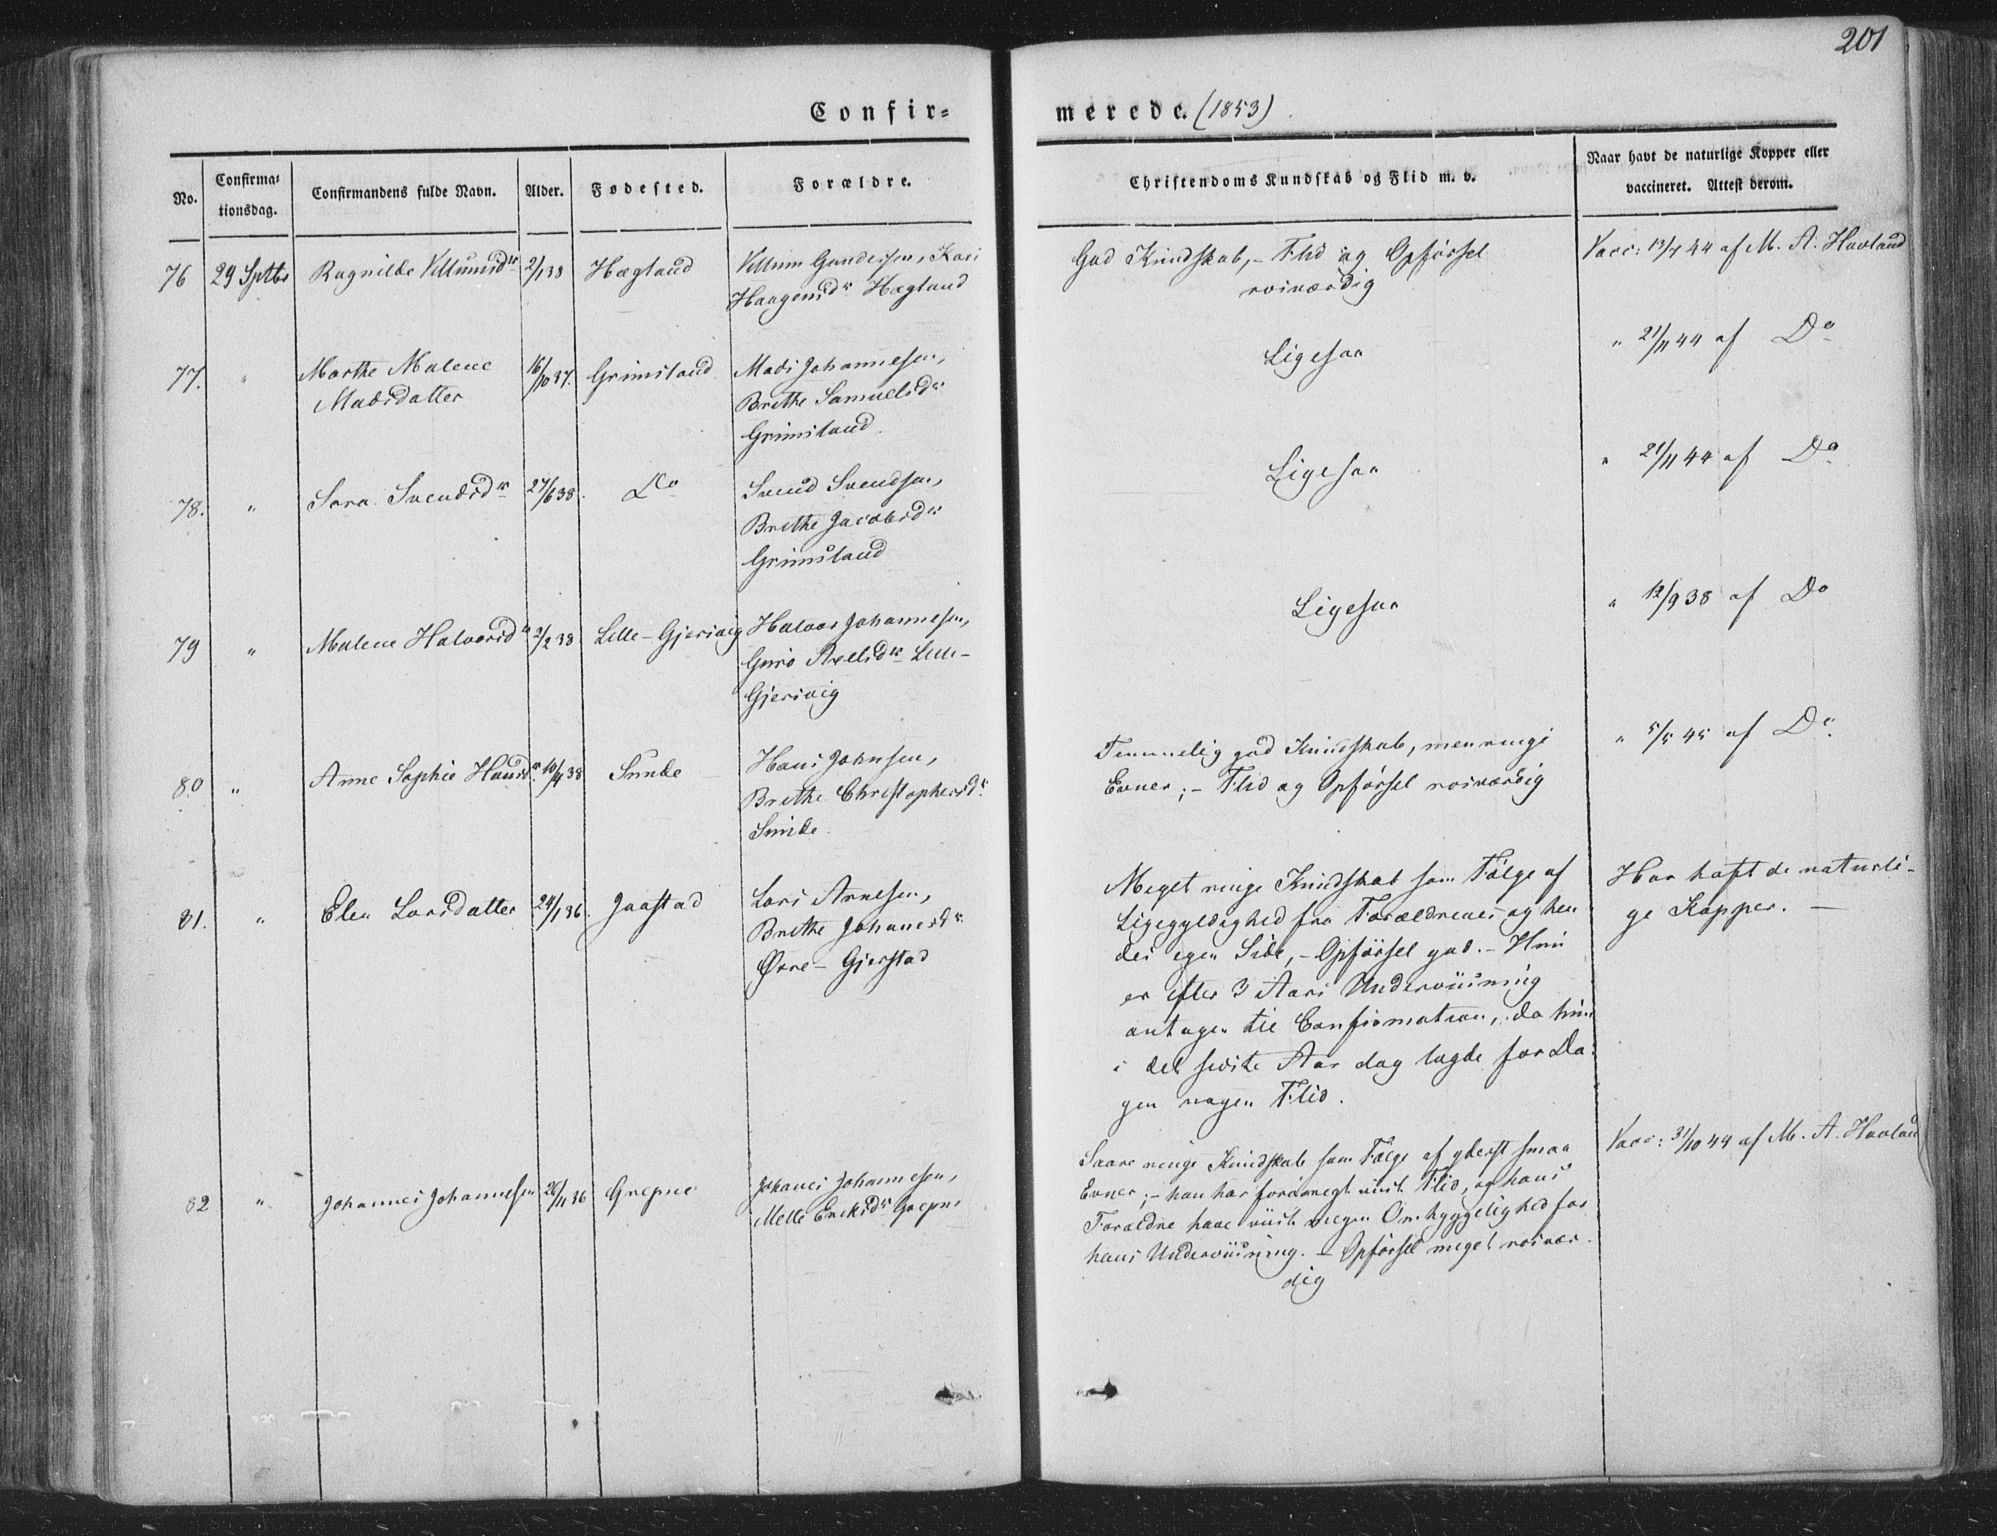 201
Confir=
merede. (1853)
No.
Confirma=
tionsdag.
Confirmandens fulde Navn.
Alder.
Fødested.
Forældre.
Christendoms Kundskab og Flid m. v.
Naar havt de naturlige Kopper eller
vaccineret. Attest derom.
76 29 Sptbr Ragnilde Villumsdr 2/1 38 Hægland Villum Gundersen, Kari
Haagensdr Hægland
God Kundskab, - Flid og Opførsel
roesværdig
Vacc: 13/7 44 af M. A. Havland
77. " Marthe Malene 16/10 37. Grimstand Mads Johannesen,
Madsdatter Brithe Samuelsdr
Grimstand.
Ligesaa
" 21/11 44 af Do
78. " Sara Svendsdr 27/6 38. Do Svend Svendsen,
Brithe Jacobsdr
Grimstand
Ligesaa
" 21/11 44 af Do
79 " Malene Halvorsdr 2/2 38 Lille-Gjersvig Halvor Johannesen,
Guro Axelsdr Lille-
Gjersvig
Ligesaa
" 12/9 38 af Do
80 " Anne Sophie Hansdr. 10/4 38 Sunde Hans Johnsen,
Brithe Christophersdr.
Sunde.
Temmelig god Kundskab, men ringe
Evner; - Flid og Opførsel roesværdig
" 5/5 45 af Do
81. " Elen Larsdatter 24/1 36. Jaastad Lars Arnesen,
Brithe Johanesdr.
Øvre- Gjerstad
Meget ringe Kundskab som Følge af
Ligegyldighed fra Forældrenes og hen
des egen Side, - Opførsel god. - Hun
er efter 3 Aars Underviisning
antagen til Confirmation, da hun
i det sidste Aar dog lagde for Da-
gen nogen Flid.
Har haft de naturli-
ge Kopper. -
82 " Johannes Johannesen 26/11 36 Grepne Johanes Johannesen,
Mette Ericksdr Grepne
Saare ringe Kundskab som Følge af yderst smaa
Evner; - han har forøvrigt viist Flid, og hans
Forældre have viist megen Omhyggelighed for
hans Underviisning. - Opførsel meget roesvær-
dig
Vacc: 31/10 44 af M. A. Havland